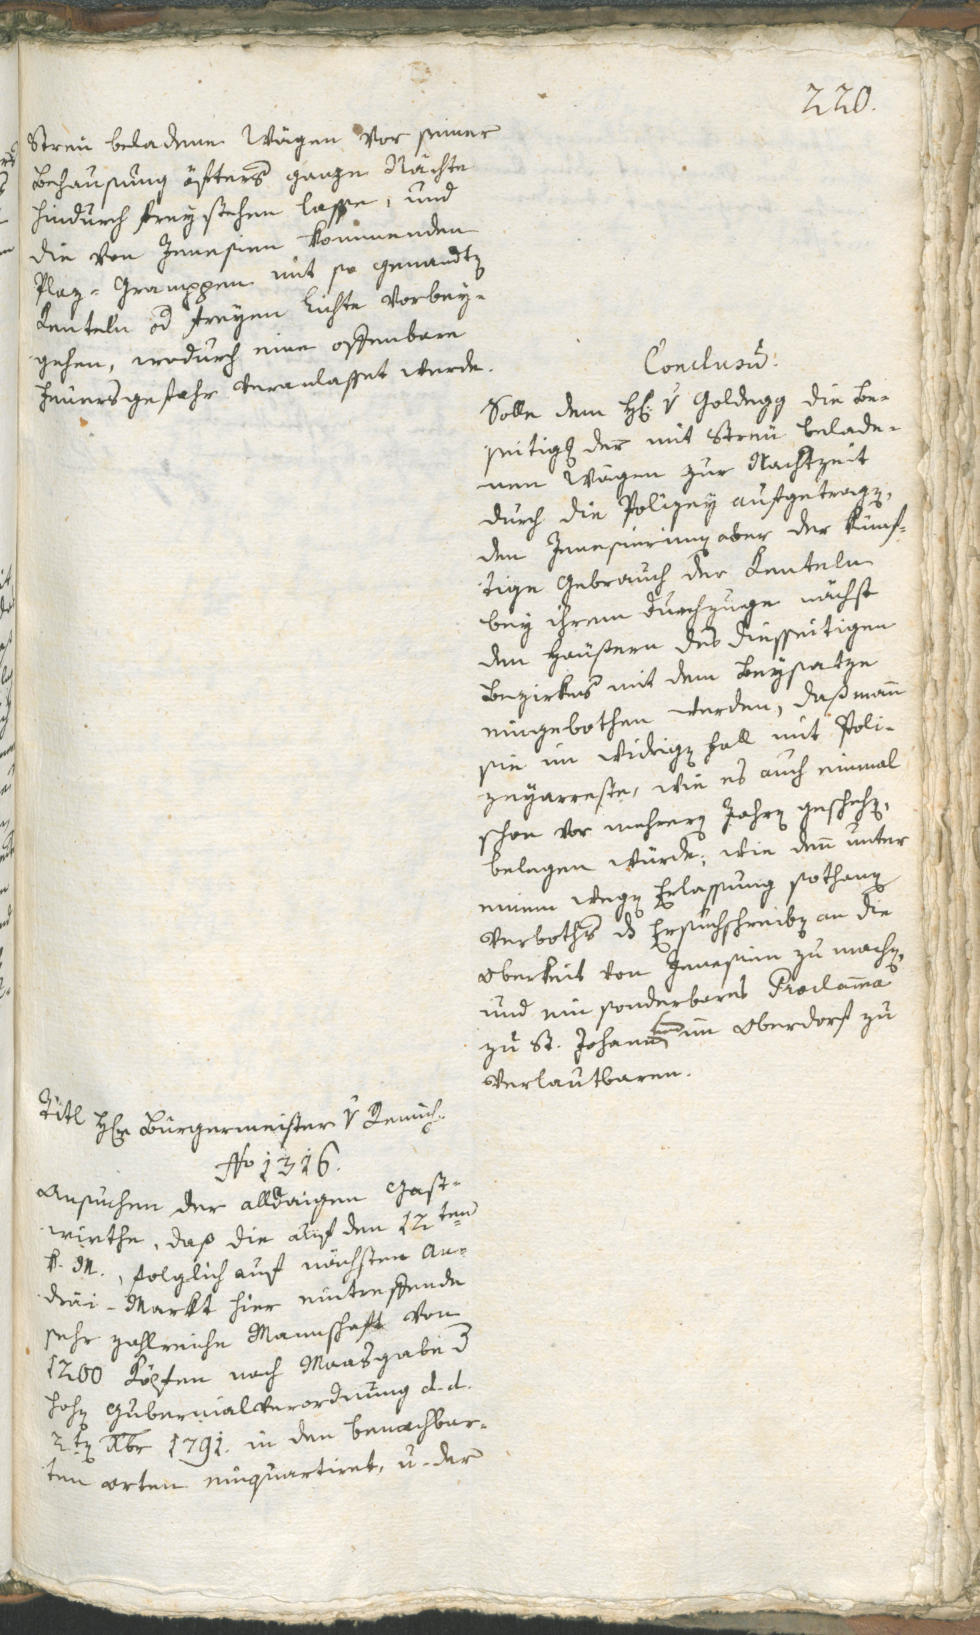 220.
Streü beladene Wägen vor seiner
Behausung öfters ganze Nächte
hindurch freystehen lasse, und
die von Jenesien kommenden
Plaz-Gramppen mit so genandtẽ
Kenteln od freyen Lichte vorbey-
gehen, wodurch eine offenbare
Feuersgefahr veranlasset werde.
Conclusũ:
Solle dem H: v Goldegg die Be-
seitigg der mit Streü belade-
nen Wägen zur Nachtzeit
durch die Polizey aufgetragẽ,
den Jenesiering aber der künf-
tige Gebrauch der Kenteln
bey ihrem Durchzuge nächst
den Häüßern des diesseitigen
Bezirkes mit dem Beysatze
eingebothen werden, daß man̄
sie im widrigẽ Fall mit Poli-
zeyarreste, wie es auch einmal
schon vor mehrerẽ Jahrẽ geschehẽ,
belegen würde; wie den̄ unter
einem wegẽ Erlassung sothanẽ
Verboths ds Ersuchschreibẽ an die
Oberkeit von Jenesien zu machẽ,
und ein sonderbares Proclam̄a
zu St. Johann im Oberdorf zu
verlautbaren.
Titl H: Bürgermeister v Remich
No 1316.
Ansuchen der alldaigen Gast-
wirthe, daß die auf den 12ten
k. M., folglich auf nächsten An-
dräi-Markt hier eintreffende
sehr zahlreiche Mannschaft von
1200 Köpfen nach Maasgabe d
hohẽ Gubernialverordnung d. d.
2tẽ Xbr 1791. in den benachbar-
ten Orten einquartiret, u. der